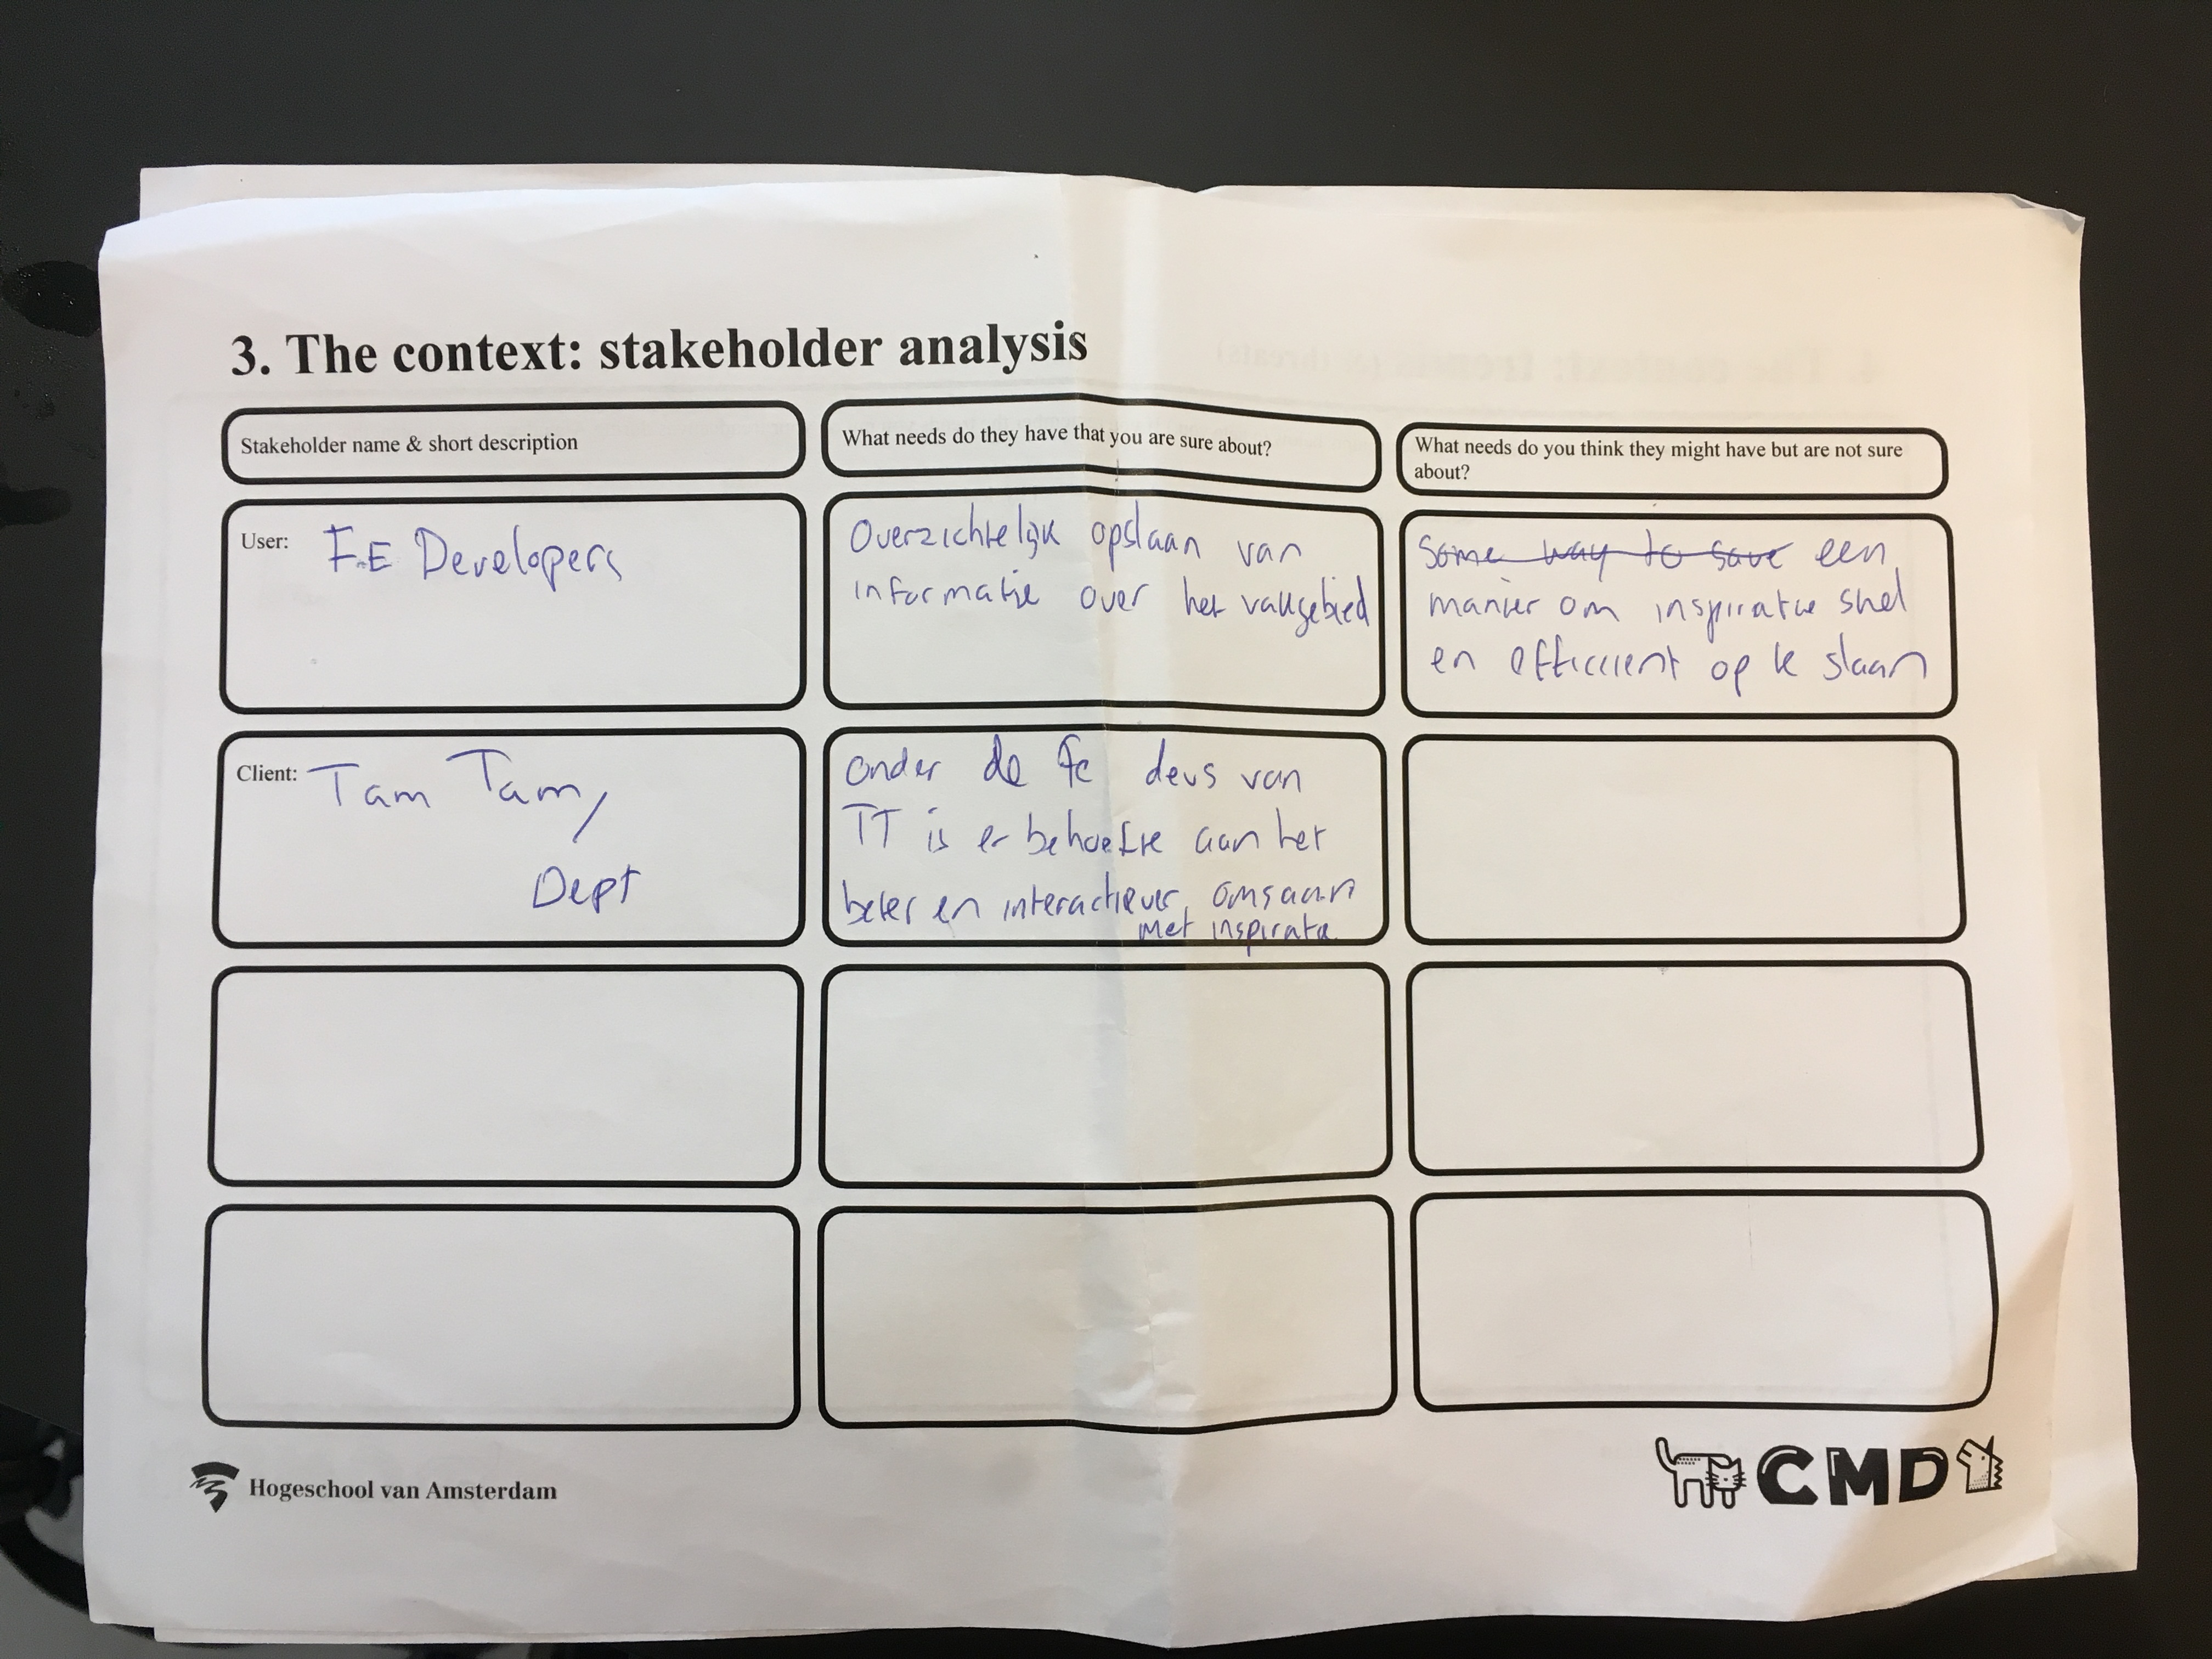 3. The context: stakeholder analysis
Stakeholder name & short description
What needs do they have that you are sure about?
What needs do you think they might have but are not sure
about?
User: F.E Developers
Overzichtelijk opslaan van
informatie over het vakgebied
Some way to save een
manier om inspiratie snel
en efficient op te slaan
Client: Tam Tam,
Dept
onder de fe devs van
TT is er behoefte aan het
beter en interactiever omgaan
met inspiratie
Hogeschool van Amsterdam
CMD